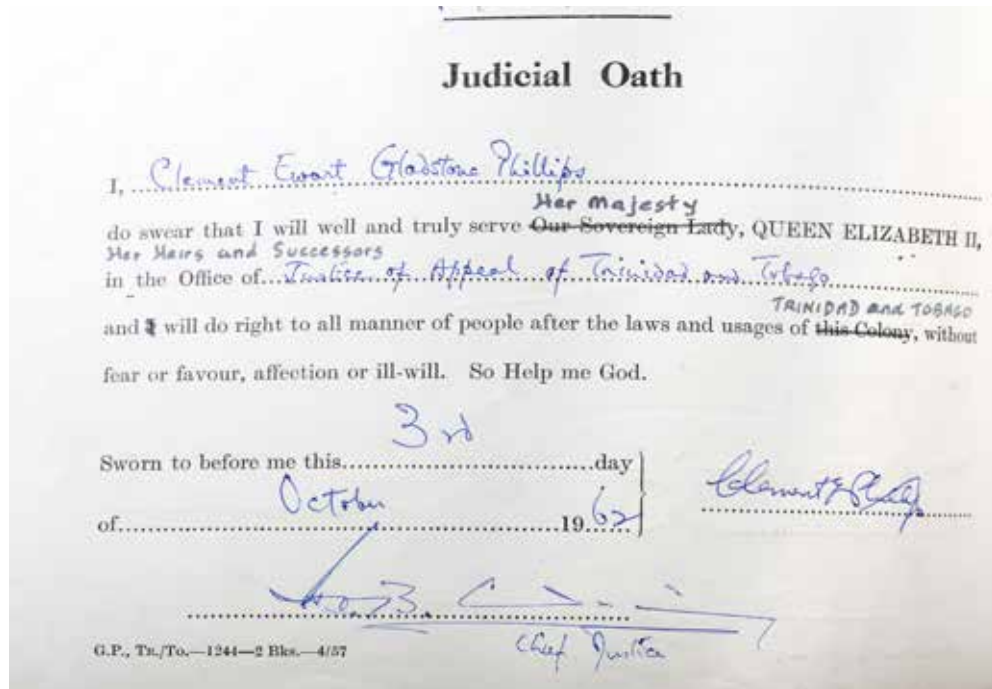 Judicial Oath
I, Clement Ewart Gladstone Phillips
Her Majesty
do swear that I will well and truly serve Our Sovereign Lady, QUEEN ELIZABETH II,
Her Heirs and Successors
in the Office of Justice of Appeal of Trinidad and Tobago
TRINIDAD and TOBAGO
and I will do right to all manner of people after the laws and usages of this Colony, without
fear or favour, affection or ill-will. So Help me God.
Sworn to before me this 3rd day
of October 1962
Clement E Phillips
Chief Justice
G.P., TR./TO.—1244—2 Bks.—4/57